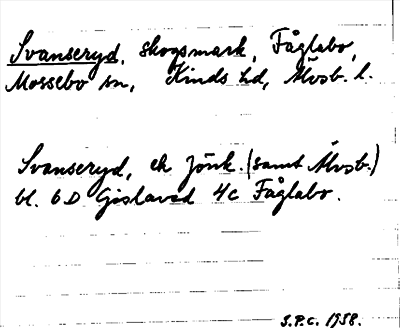 Svanseryd, skogsmark, Fåglabo,
Mossebo sn, Kinds hd, Älvsb. l.
Svanseryd, ek Jönk. (samt Älvsb.)
bl. 6 D Gislaved 4c Fåglabo.
S.P.C. 1958.